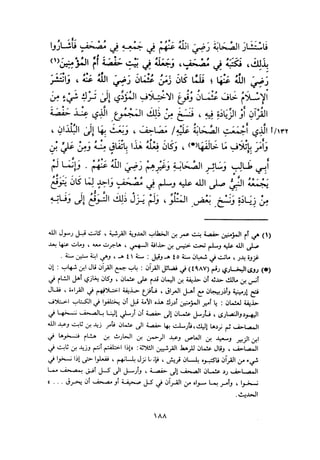 فاستشار الصحابة رضي الله عنهم في جمعه في مصحف فأشاروا
بذلك ، فكتبه في مصحف، وجعله في بيت حفصة أم المؤمنين(١)
رضي الله عنها ؛ فلما كان زمن عثمان رضي الله عنه ، وانتشر
الإسلام خاف عثمان وقوع الاختلاف المؤدي إلى ترك شيء من
القرآن أو الزيادة فيه ، فنسخ من ذلك المجموع الذي عند حفصة
١/١٣٢ الذي أجمعت الصحابة عليه/ مصاحف ، وبعث بها إلى البلدان ،
وأمر بإتلاف ما خالفها(*) ، وكان فعله هذا باتفاق منه ومن علي بن
أبي طالب وسائر الصحابة وغيرهم رضي الله عنهم . وإنما لم
يجمعه النبي صلى الله عليه وسلم في مصحف واحد لما كان يتوقع
من زيادة ونسخ بعض المتلو ، ولم يزل ذلك التوقع إلى وفاته
(١) هي أم المؤمنين حفصة بنت عمر بن الخطاب العدوية القرشية ، كانت قبل رسول الله
صلى الله عليه وسلم تحت خنيس بن حذافة السهمي ، هاجرت معه ، ومات عنها بعد
غزوة بدر ، ماتت في شعبان سنة ٤٥ هـ وقيل : سنة ٤١ هـ ، وهي ابنة ستين سنة .
(*) روى البخاري رقم (٤٩٨٧) في فضائل القرآن : باب جمع القرآن قال ابن شهاب : إن
أنس بن مالك حدثه أن حذيفة بن اليمان قدم على عثمان ، وكان يغازي أهل الشام في
فتح إرمينية وأذربيجان مع أهل العراق ، فأفزع حذيفة اختلافهم في القراءة ، فقال
حذيفة لعثمان : يا أمير المؤمنين أدرك هذه الأمة قبل أن يختلفوا في الكتاب اختلاف
اليهود والنصارى ، فأرسل عثمان إلى حفصة أن أرسلي إلينا بالصحف ننسخها في
المصاحف ثم نردها إليك، فأرسلت بها حفصة الى عثمان فأمر زيد بن ثابت وعبد الله
ابن الزبير وسعيد بن العاص وعبد الرحمن بن الحارث بن هشام فنسخوها في
المصاحف ، وقال عثمان للرهط القرشيين الثلاثة : «إذا اختلفتم أنتم وزيد بن ثابت في
شيء من القرآن فاكتبوه بلسان قريش ، فإنما نزل بلسانهم ، ففعلوا حتى إذا نسخوا في
المصاحف رد عثمان الصحف إلى حفصة ، وأرسل الى كل أفق بمصحف مما
نسخوا ، وأمر بما سواه من القرآن في كل صحيفة أو مصحف أن يحرق . . . ،
الحديث.
١٨٨